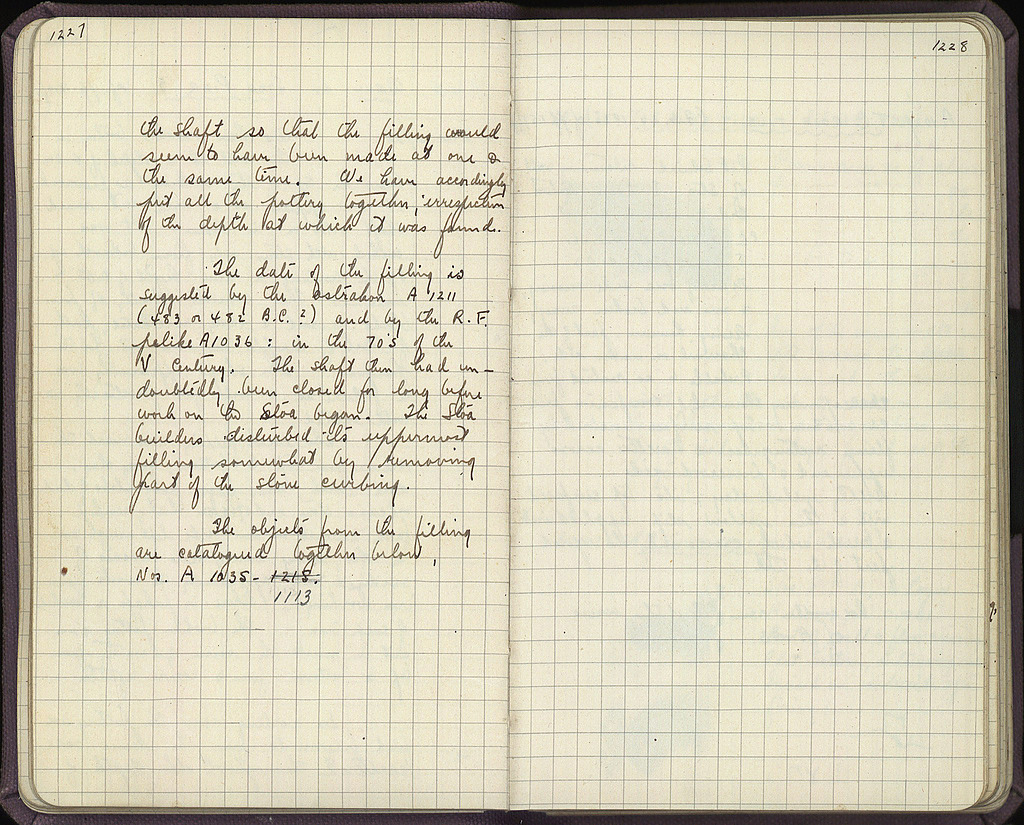 1227
the shaft so that the filling would
seem to have been made at one &
the same time. We have accordingly
put all the pottery together, irrespective
of the depth at which it was found.
The date of the filling is
suggested by the ostrakon A 1211
(483 or 482 B.C.?) and by the R.F.
pelike A1036 : in the 70's of the
V Century. The shaft then had un-
doubtedly been closed for long before
work on the Stoa began. The Stoa
builders disturbed its uppermost
filling somewhat by removing
part of the stone curbing.
The objects from the filling
are catalogued together below,
Nos. A 1035 - 1218.
1113
1228